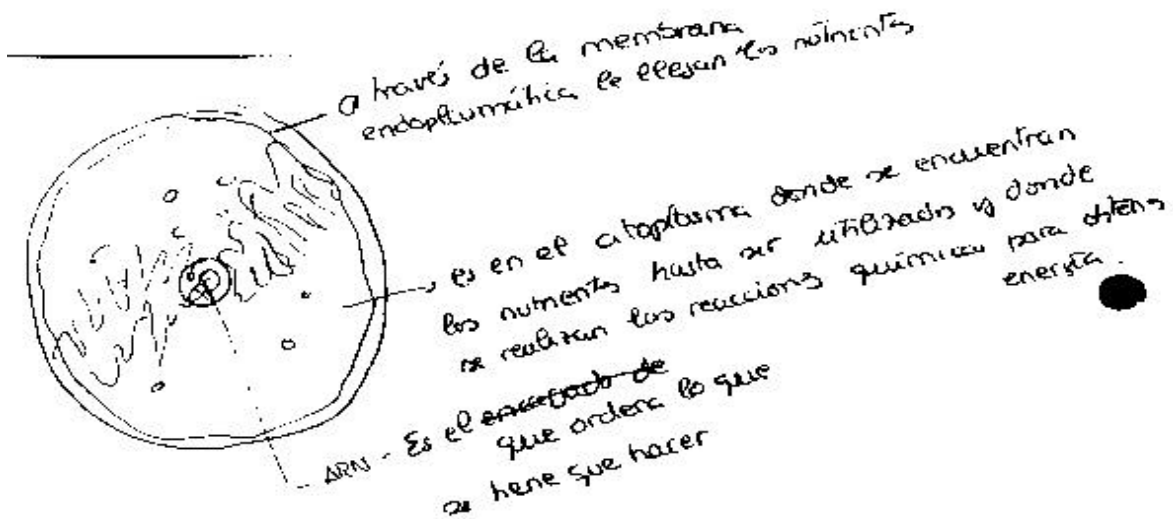 a través de la membrana
endoplasmática le llegan los nutrientes
es en el citoplasma donde se encuentran
los nutrientes hasta ser utilizados y donde
se realizan las reacciones químicas para obtener
energía.
ARN - Es el encargado de
que ordena lo que
se tiene que hacer